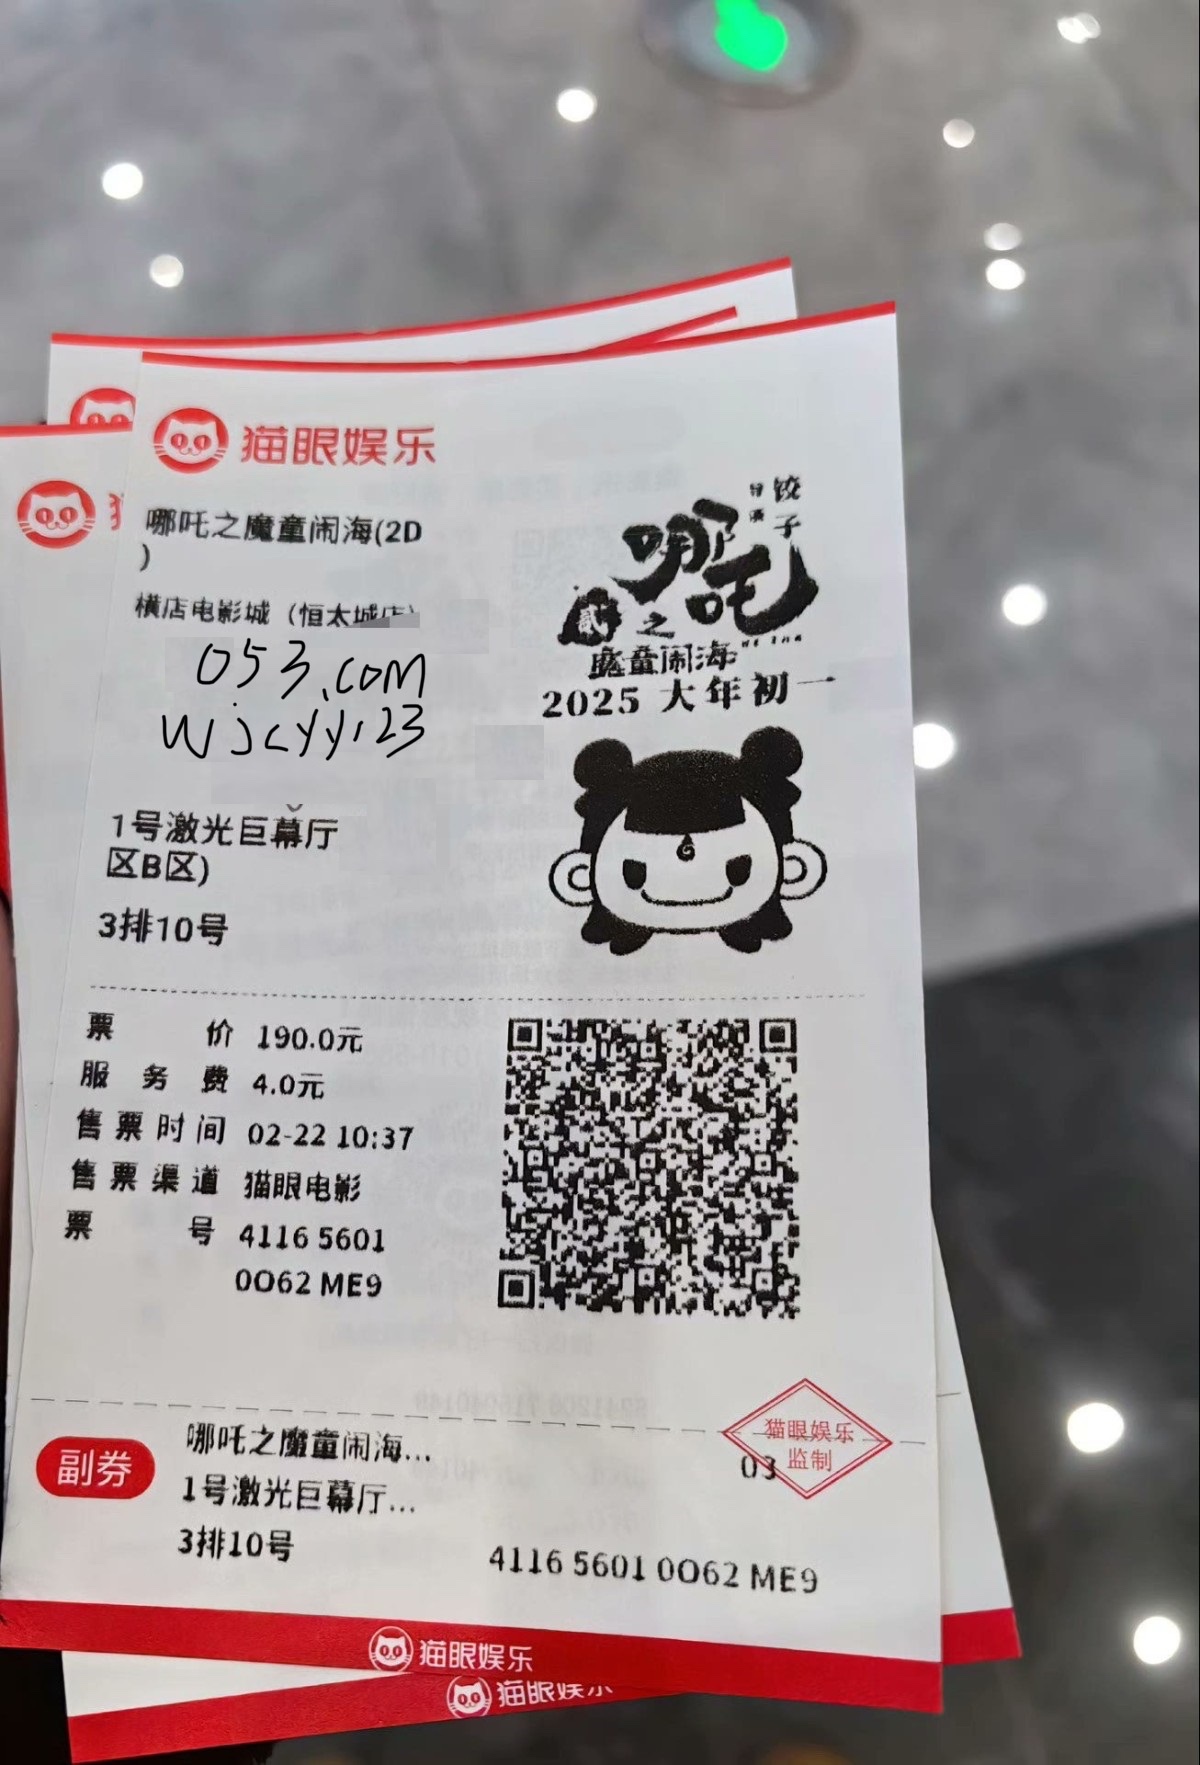 猫眼娱乐
哪吒之魔童闹海(2D
)
横店电影城（恒太城店）
053.com
wjcyy123
1号激光巨幕厅
区B区)
3排10号
导演 饺子
哪吒
贰
之
魔童闹海
2025 大年初一
票价 190.0元
服务费 4.0元
售票时间 02-22 10:37
售票渠道 猫眼电影
票号 4116 5601
0O62 ME9
副券
哪吒之魔童闹海...
1号激光巨幕厅...
3排10号
猫眼娱乐
监制
03
4116 5601 0O62 ME9
猫眼娱乐
猫眼娱乐